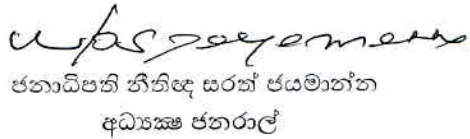 ජනාධිපති නීතිඥ සරත් ජයමාන්න
අධ්‍යක්ෂ ජනරාල්